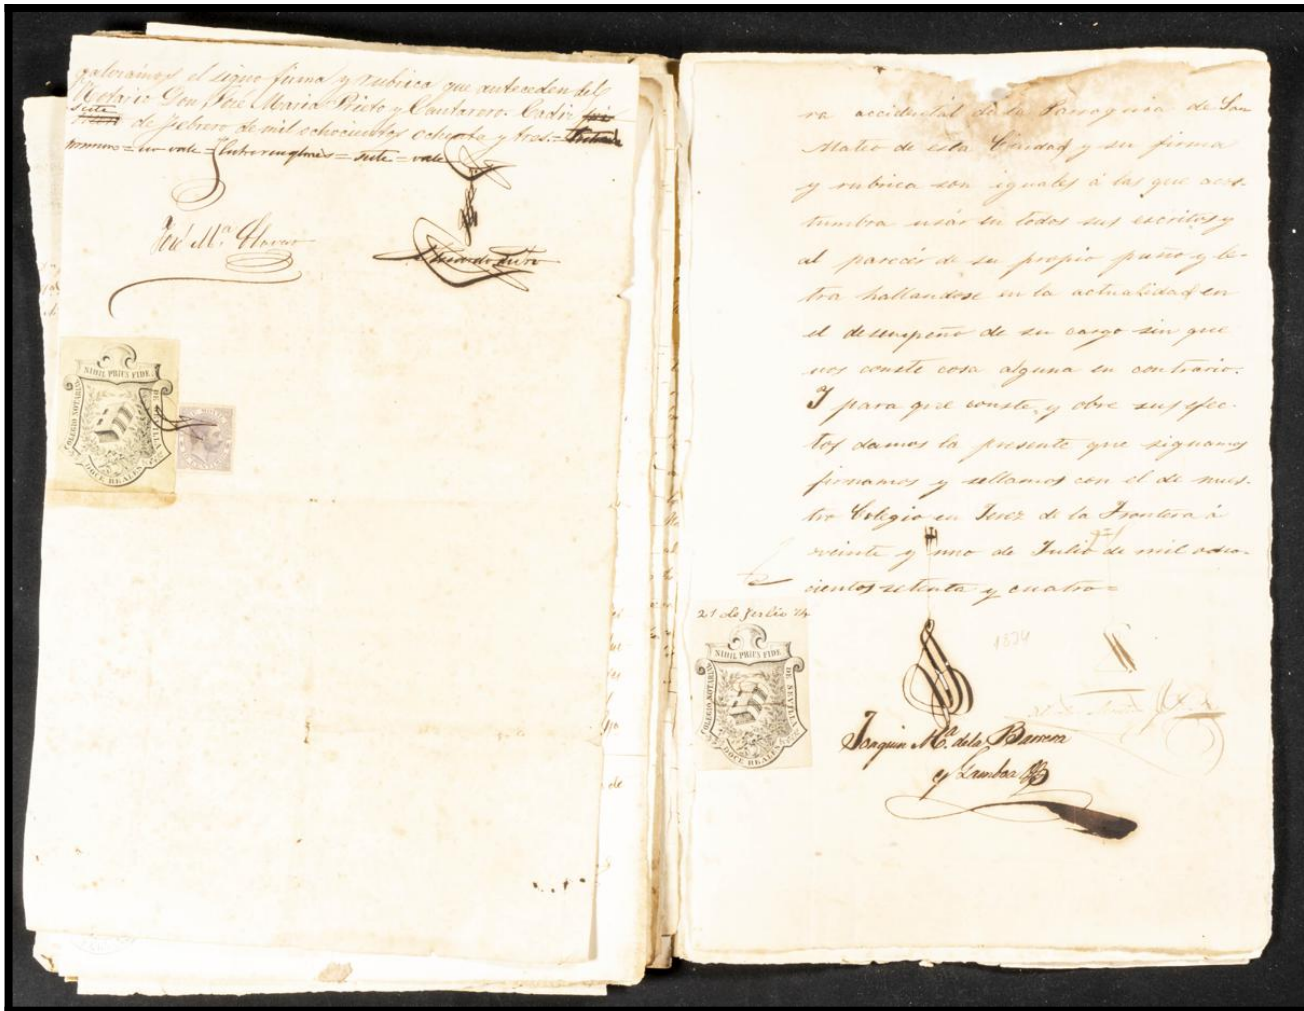 galizamos el signo firma y rubrica que anteceden del
Notario Don José Maria Prieto y Cantarero. Cadiz
siete
de Febrero de mil ochocientos ochenta y tres.=
no vale = Entrerenglones = siete = vale
José Mª
NIHIL PRIUS FIDE
COLEGIO NOTARIAL
DE SEVILLA
DOCE REALES
ra accidental de la Parroquia de San
Mateo de esta Ciudad y su firma
y rubrica son iguales á las que acos-
tumbra usár en todos sus escritos y
al parecér de su propio puño y le-
tra hallandose en la actualidad en
el desempeño de su cargo sin que
nos conste cosa alguna en contrario.
Y para que conste y obre sus efec-
tos damos la presente que signamos
firmamos y sellamos con el de nues-
tro Colegio en Jerez de la Frontera á
veinte y uno de Julio de mil ocho-
cientos setenta y cuatro=
21 de Julio 74
NIHIL PRIUS FIDE
COLEGIO NOTARIAL
DE SEVILLA
DOCE REALES
1874
Joaquin Mª. de la Barrera
y